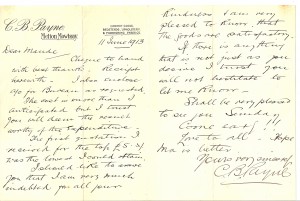 C. B. Payne
Melton Mowbray
11 June 1913
Dear Maude
Cheque to hand
with best thanks. Receipt
herewith. I also enclose
for Bureau as requested.
The cost is more than I
anticipated but I trust
you will deem the result
worthy of the expenditure.
The first quotation I
received for the top £5-5/-
was the lowest I could obtain.
I should like to assure
you that I am very much
indebted for all your
kindness. I am very
pleased to know that
the goods are satisfactory.
If there is anything
that is not just as you
desire I trust you
will not hesitate to
let me know.
Shall be very pleased
to see you Sunday
Come early!
Love to all. Hope
Ma is better
Yours very sincerely
C. B. Payne